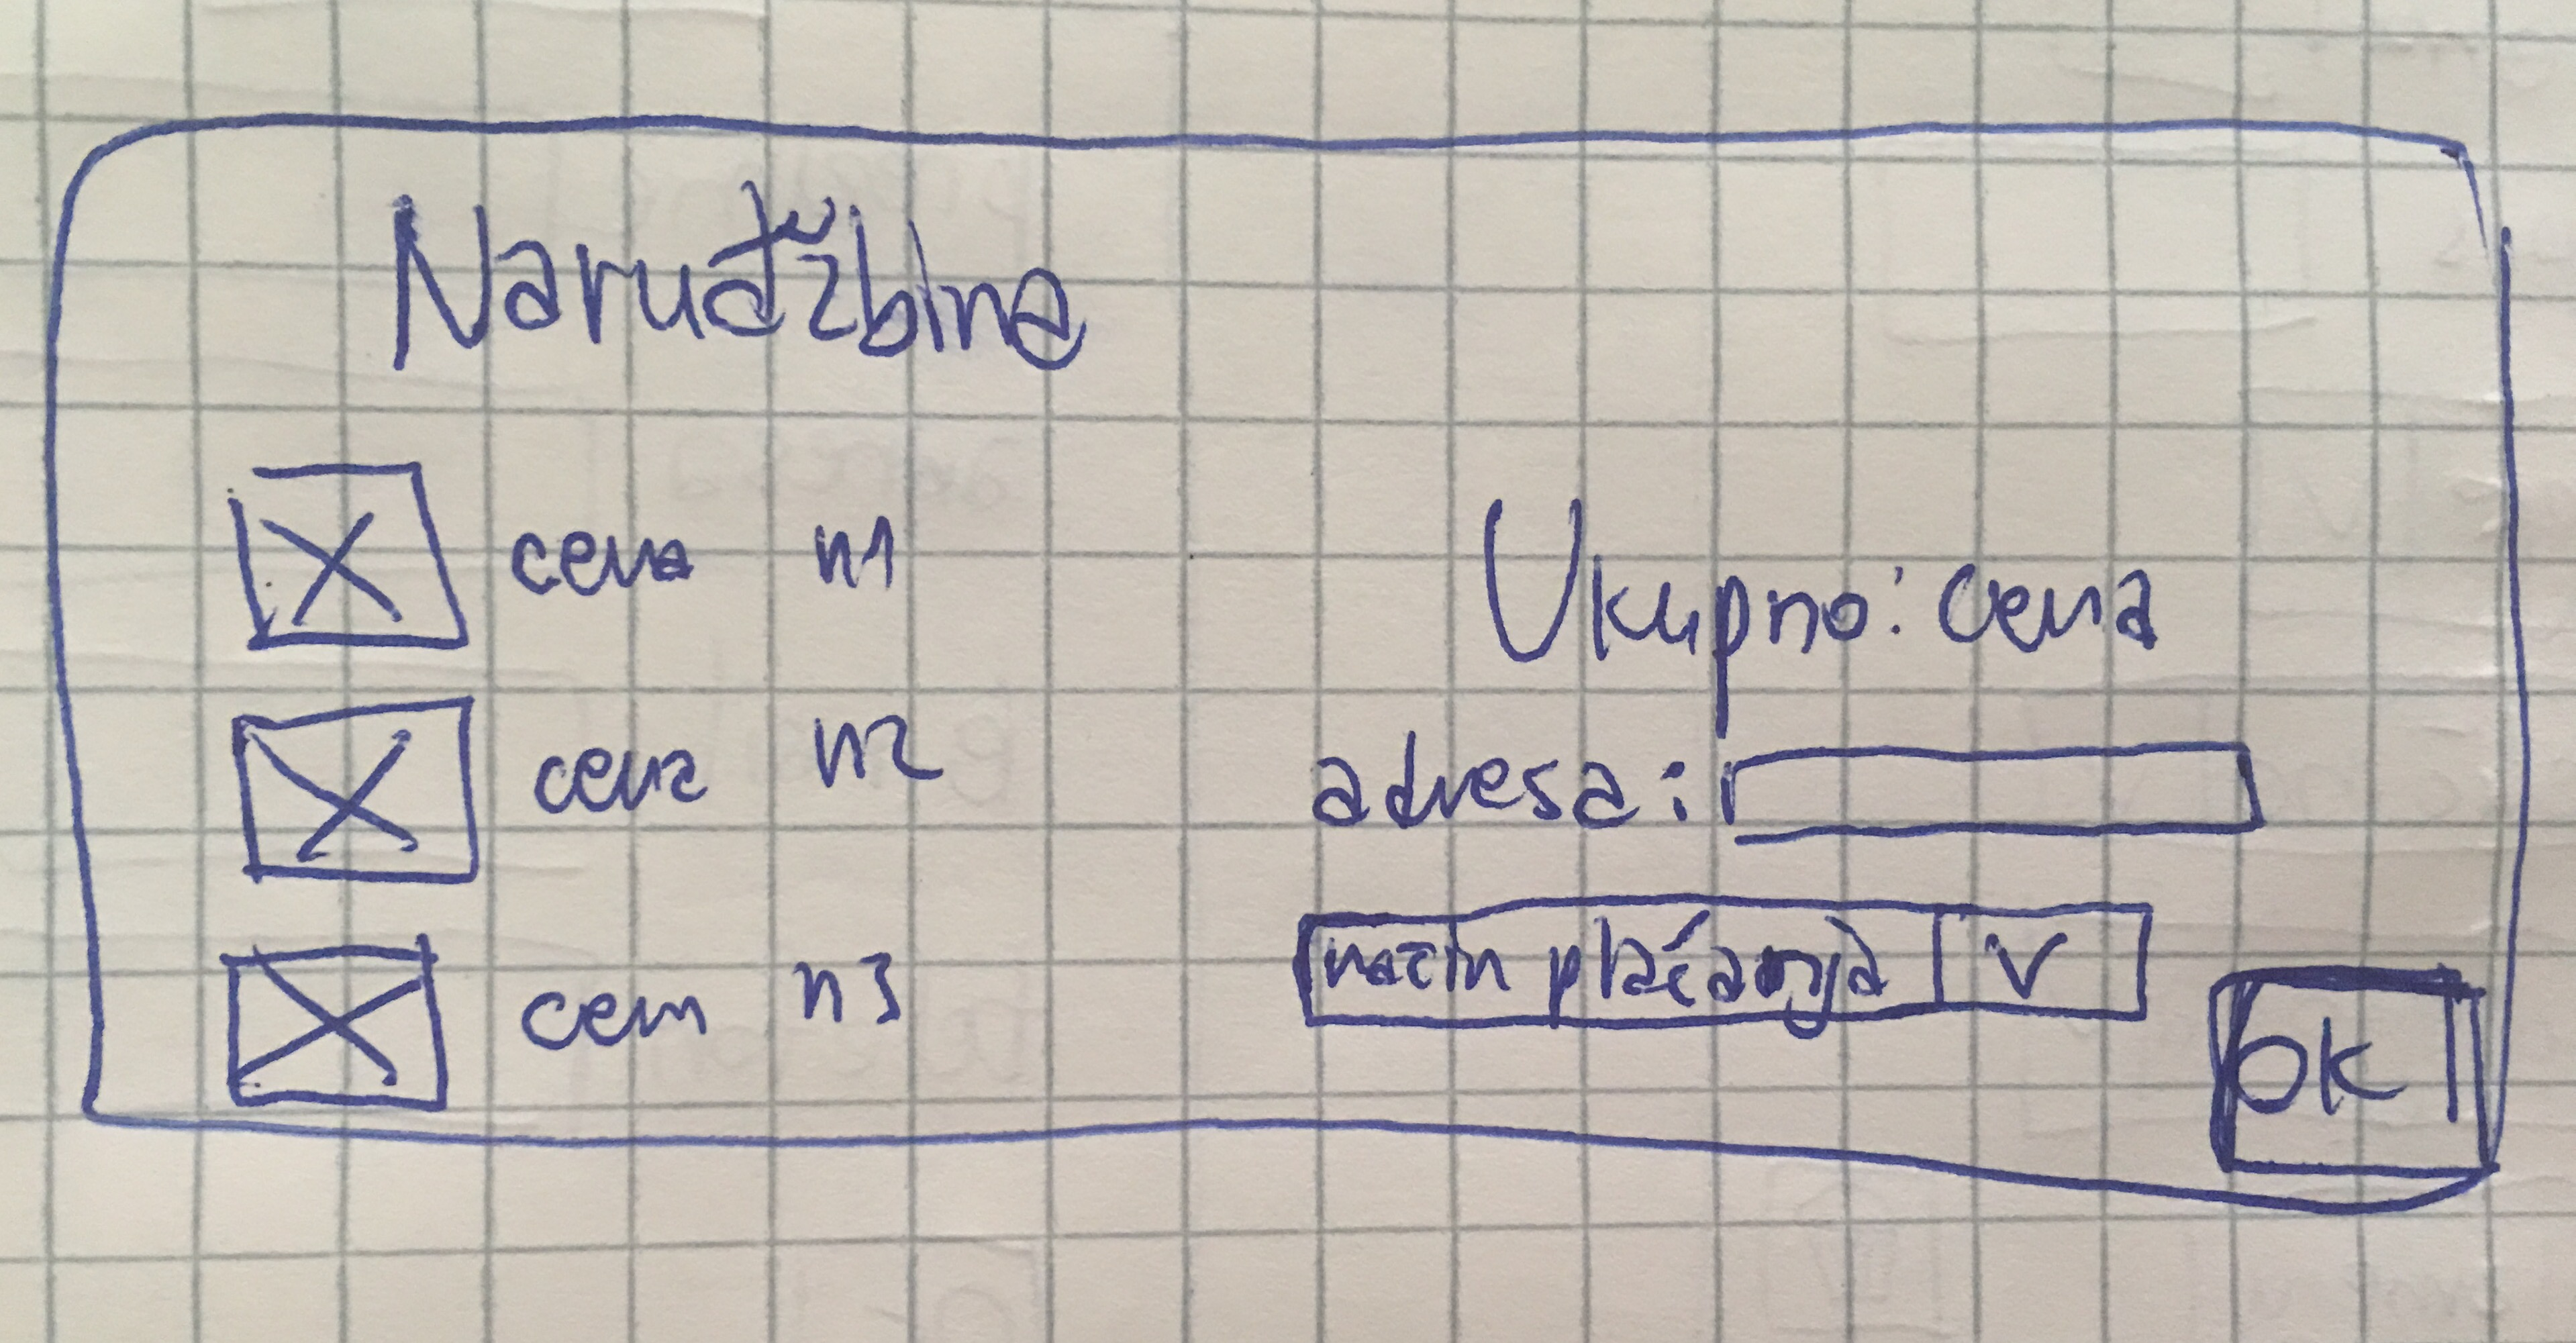 Naruđžbine
cena n1
cena n2
cena n3
Ukupno: cena
adresa:
način plaćanja V
OK